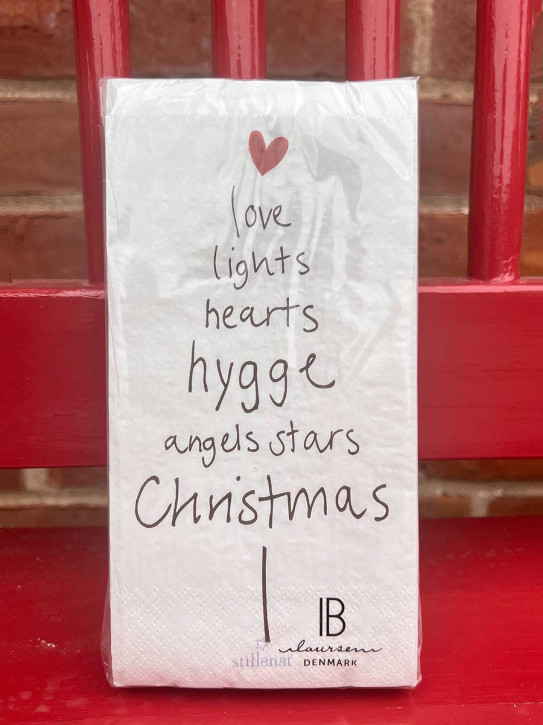 love
lights
hearts
hygge
angels stars
Christmas
IB
laursen
DENMARK